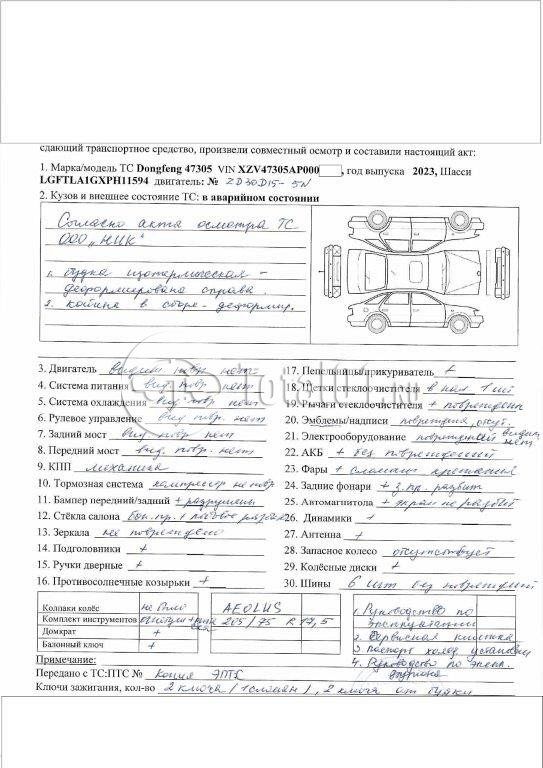 сдающий транспортное средство, произвели совместный осмотр и составили настоящий акт:
1. Марка/модель ТС Dongfeng 47305 VIN XZV47305AP000 , год выпуска 2023, Шасси
LGFTLA1GXPH11594 двигатель: № ZD30D15-5N
2. Кузов и внешнее состояние ТС: в аварийном состоянии
Согласно акта осмотра ТС
ООО "НИК"
1. будка изотермическая -
деформирована справа
2. кабина в сборе - деформир.
3. Двигатель видим повр. нет
4. Система питания вид повр. нет
5. Система охлаждения вид повр. нет
6. Рулевое управление вид повр. нет
7. Задний мост вид повр. нет
8. Передний мост вид. повр. нет
9. КПП механика
10. Тормозная система компрессор не повр
11. Бампер передний/задний + разрушены
12. Стёкла салона бок. пр. + лобовое
13. Зеркала не повреждено
14. Подголовники +
15. Ручки дверные +
16. Противосолнечные козырьки +
17. Пепельницы/прикуриватель +
18. Щетки стеклоочистителя в нал. 1 шт
19. Рычаги стеклоочистителя + повреждены
20. Эмблемы/надписи повреждения, отсут.
21. Электрооборудование повреждений видим. нет.
22. АКБ + без повреждений
23. Фары + сломаны крепления
24. Задние фонари + з.пр. разбит
25. Автомагнитола + экран не разбит
26. Динамики +
27. Антенна +
28. Запасное колесо отсутствует
29. Колёсные диски +
30. Шины 6 шт без повреждений
Колпаки колёс не было
Комплект инструментов
Домкрат +
Балонный ключ +
AEOLUS
205/75 R 17,5
1. Руководство по
эксплуатации
2. Сервисная книжка
3. Паспорт холод. установки
4. Руководство по экспл.
Примечание:
Передано с ТС:ПТС № Копия ЭПТС
Ключи зажигания, кол-во 2 ключа (1 сломан), 2 ключа от будки